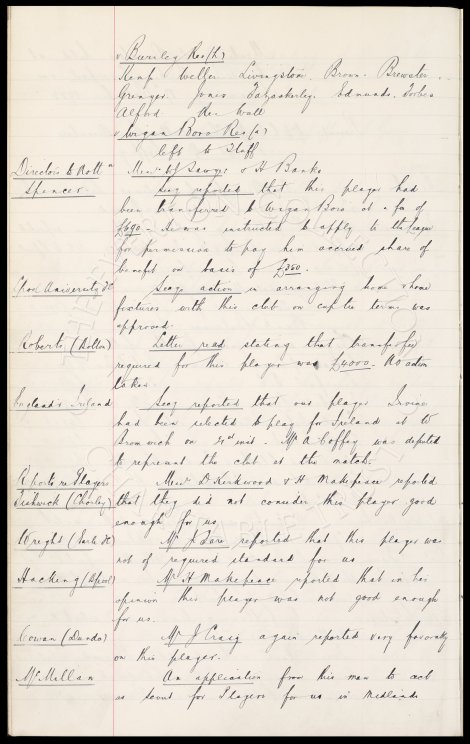 v Burnley Res (h)
Kemp Weller Livingstone Brown Brewster
Grainger Jones Fazackerley Edmunds Forbes
Alford Res Wall
v Wigan Boro Res (a)
left to Staff
Directors to Rott^m Mess^rs W Sawyer & H Banks
Spencer Secy reported that this player had
been transferred to Wigan Boro at a fee of
£690 – he was instructed to apply to the league
for permission to pay him accrued share of
benefit on basis of £350.
University FC Secys action in arranging home & home
fixtures with this club on cup tie terms was
approved.
Roberts (Bolton) Letter read stating that transfer fee
required for this player was £4000. No action
taken
England v Ireland Secy reported that our player Irvine
had been selected to play for Ireland at W
Bromwich on inst. Mr A Coffey was deputed
to represent the club at the match.
Reports re Players Mess^rs D Kirkwood & H Makepeace reported
(Chorley) that they did not consider this player good
enough for us
Wright ( FC) Mr J Fare reported that this player was
not of required standard for us
Hacking ( ) Mr H Makepeace reported that in his
opinion this player was not good enough
for us.
Cowan (Dundee) Mr J Craig again reported very favorably
on this player.
McMillan An application from this man to act
as scout for Players for us in Midlands